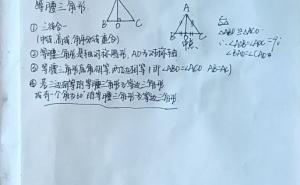 等腰三角形
A
B D C
B D C
中线
① 三线合一
(中线,高线,角平分线重合)
② 等腰三角形是轴对称图形, AD为对称轴
③ 等腰三角形底角相等 两边相等 (即∠ABD=∠ACD AB=AC)
④ 若三边相等的等腰三角形为等边三角形
或有一个角为60°的等腰三角形为等边三角形
△ABD≌△ACD
∴∠ADB=∠ADC=90
∠BAD=∠CAD